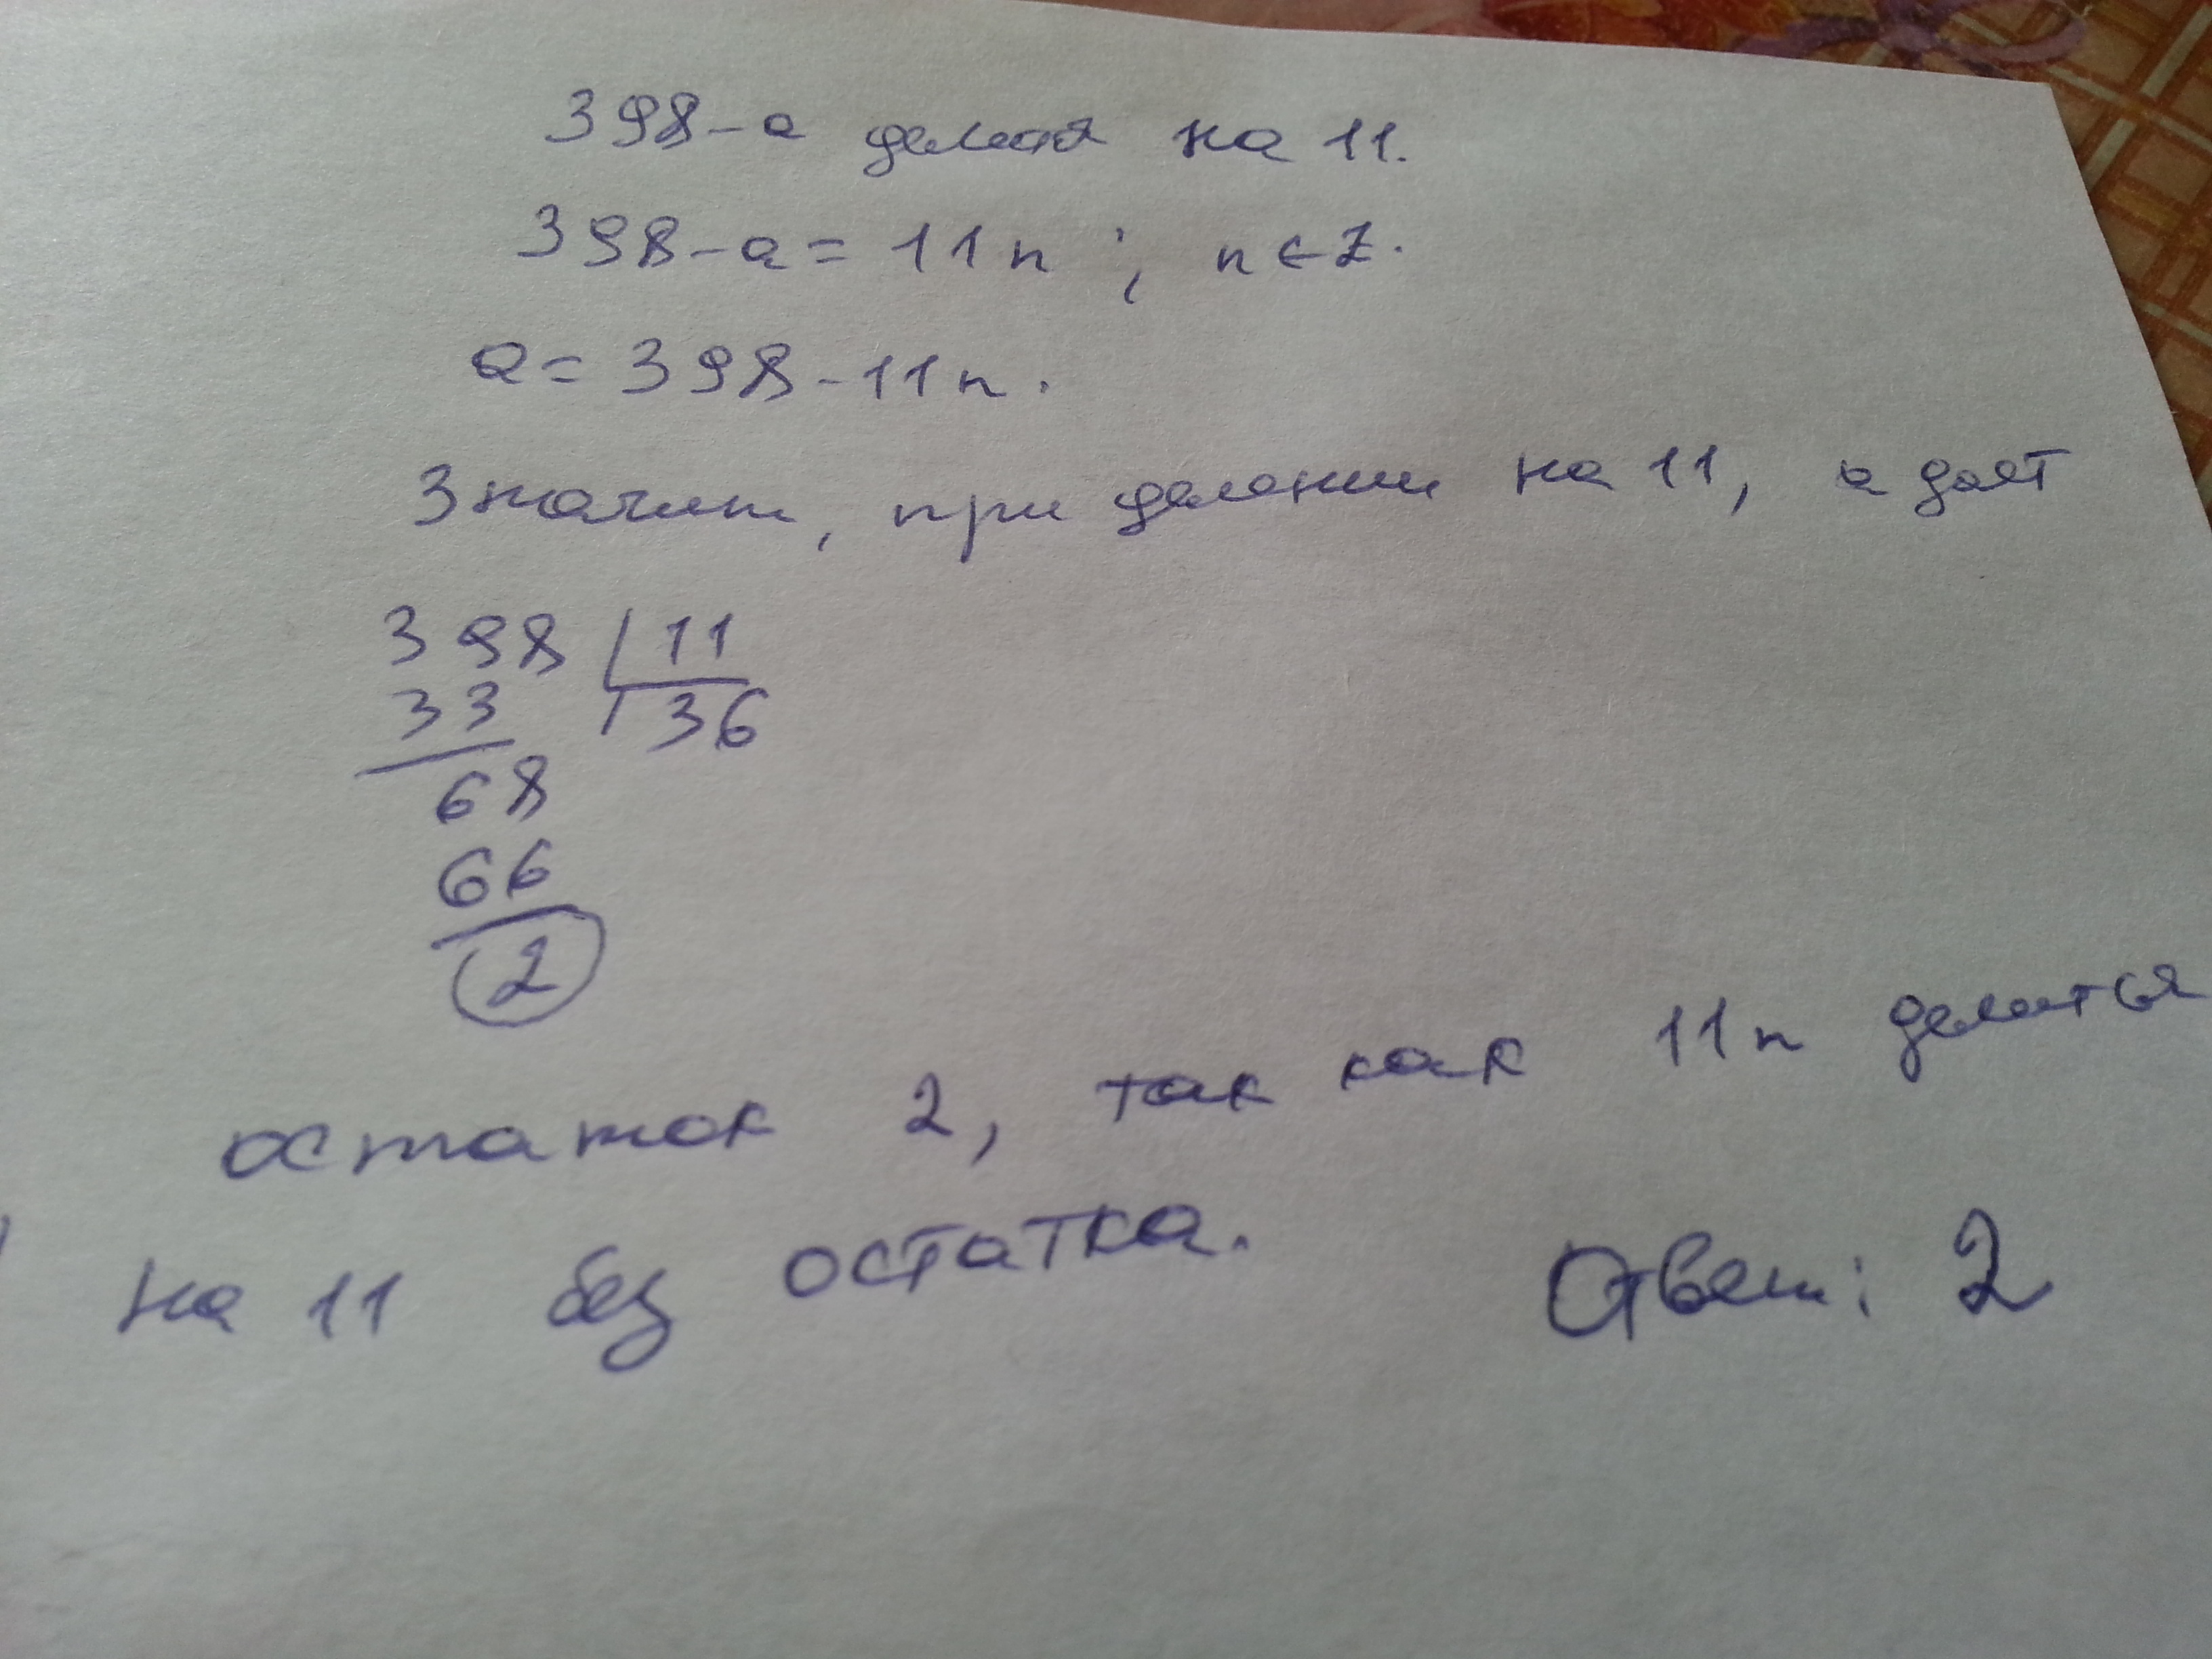 398-а делится на 11.
398-а = 11n ; n ∈ Z.
а = 398-11n.
Значит, при делении на 11, а даёт
398 | 11
33 36
68
66
2
остаток 2, так как 11n делится
на 11 без остатка. Ответ: 2